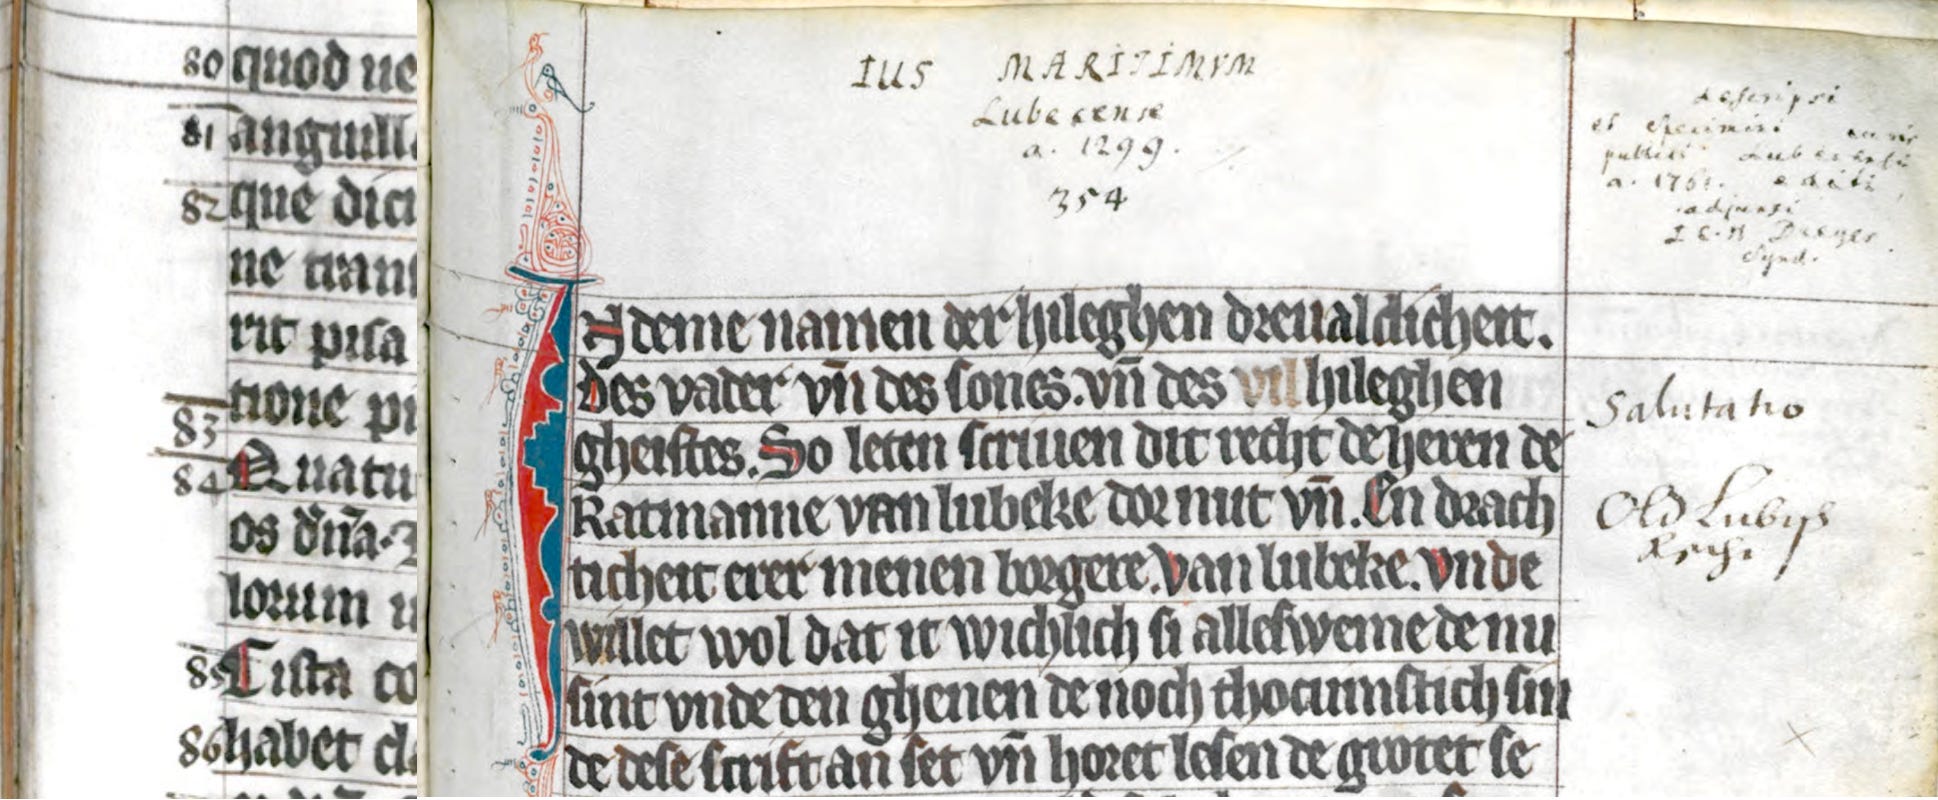 80 quod ne
81 anguill
82 que dici
ne trans
rit pisa
tione pi
83
84 Quatu
os dn̄a.
lorum u
85 Cista co
86 habet cl
IUS MARITIMVM
Lubecense
a. 1299.
354
descripsi
et specimini
publici Lubecensis
a. 176 . editi
adjunxi
I C H Dreyer
Synd.
IN deme namen der hileghen dreualdicheit.
des vader vn̄ des sones. vn̄ des vil hileghen
gheistes. So leten scriuen dit recht de heren de
Ratmanne van lubeke dor nut vn̄. En drach
ticheit erer menen borgere. van lubeke. vnde
willet wol dat it wichlich si allesweme de nu
sint vnde den ghenen de noch thocumstich sin
de dese scrift an set vn̄ horet lesen de grotet se
Salutatio
Old Lubisch
Recht